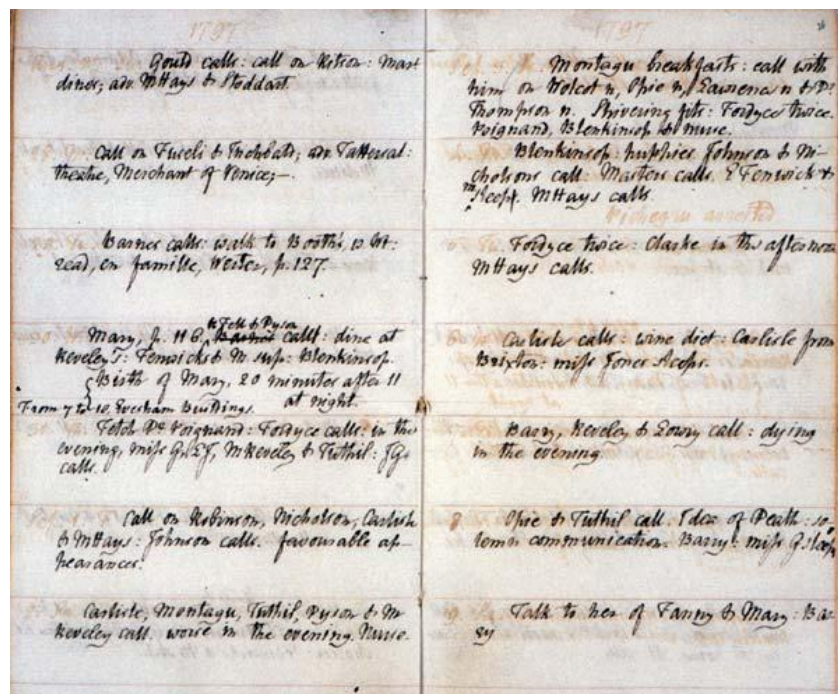 1797
Gould calls: call on Ritson: Mart
dines; adv. MHays & Stoddart.
Call on Fuseli & Inchbald; adv. Tattersal:
theatre, Merchant of Venice;—
Barnes calls: walk to Booth's, w. Wt:
read, en famille, Werter, p. 127.
Mary, p. 116. Fell & Dyson
calls: dine at
Reveley's: Fenwicks & M. sup: Blenkinsop.
Birth of Mary, 20 minutes after 11
at night.
From 7 to 10, Evesham Buildings.
Fetch Dr Poignand: Fordyce calls: in the
evening, miss G, EJ, M Reveley & Tuthil: JG
calls.
Call on Robinson, Nicholson, Carlisle
& MHays: Johnson calls. favourable ap-
pearances.
Carlisle, Montagu, Tuthil, Dyson & M
Reveley call. worse in the evening. Nurse.
1797
Montagu breakfasts: call with
him on Wolcot n, Opie n, Lawrence n & Dr
Thompson n. Shivering fits: Fordyce twice.
Poignand, Blenkinsop & nurse.
Blenkinsop: puppies Johnson & Ni-
cholson call: Masters calls. E Fenwick &
M sleep. MHays calls
Pichegru arrested
Fordyce twice: Clarke in the afternoon
MHays calls.
Carlisle calls: wine diet: Carlisle from
Brixton: miss Jones sleeps.
Barry, Reveley & Lowry call: dying
in the evening
8 Opie & Tuthil call. Idea of Death: so-
lemn communication. Barry: miss G. sleeps
Talk to her of Fanny & Mary: Bar-
ry